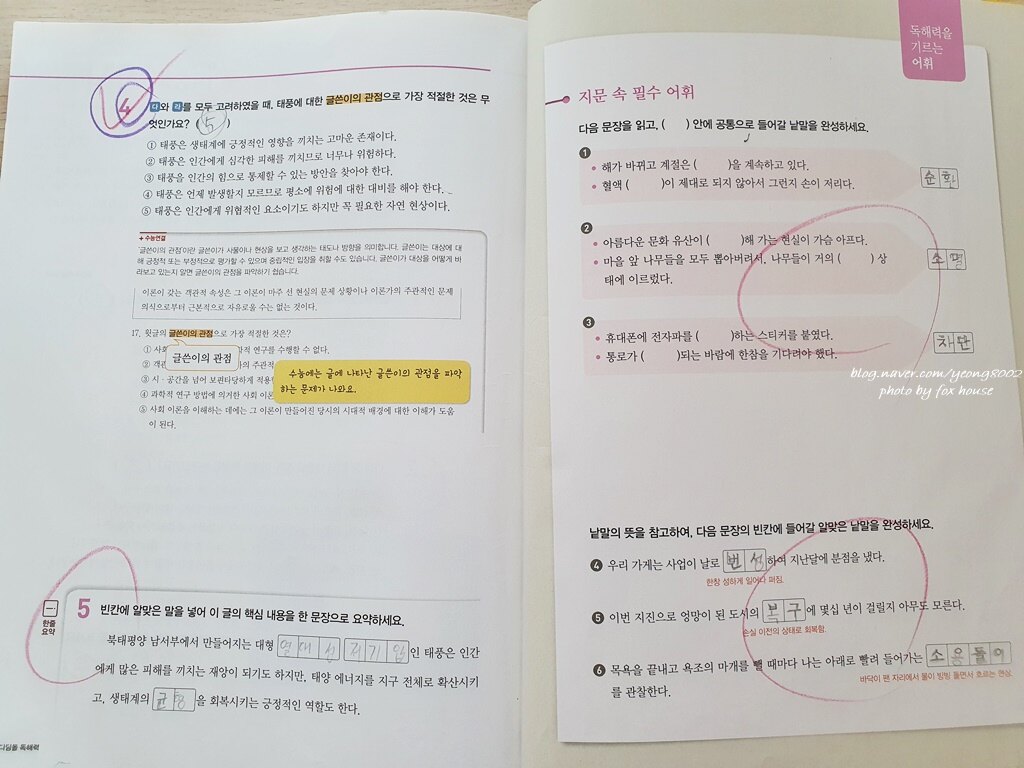 4 다와 라를 모두 고려하였을 때, 태풍에 대한 글쓴이의 관점으로 가장 적절한 것은 무
엇인가요? ( 5 )
① 태풍은 생태계에 긍정적인 영향을 끼치는 고마운 존재이다.
② 태풍은 인간에게 심각한 피해를 끼치므로 너무나 위험하다.
③ 태풍을 인간의 힘으로 통제할 수 있는 방안을 찾아야 한다.
④ 태풍은 언제 발생할지 모르므로 평소에 위험에 대한 대비를 해야 한다.
⑤ 태풍은 인간에게 위협적인 요소이기도 하지만 꼭 필요한 자연 현상이다.
+ 수능연결
'글쓴이의 관점'이란 글쓴이가 사물이나 현상을 보고 생각하는 태도나 방향을 의미합니다. 글쓴이는 대상에 대
해 긍정적 또는 부정적으로 평가할 수 있으며 중립적인 입장을 취할 수도 있습니다. 글쓴이가 대상을 어떻게 바
라보고 있는지 알면 글쓴이의 관점을 파악하기 쉽습니다.
이론이 갖는 객관적 속성은 그 이론이 마주 선 현실의 문제 상황이나 이론가의 주관적인 문제
의식으로부터 근본적으로 자유로울 수는 없는 것이다.
17. 윗글의 글쓴이의 관점으로 가장 적절한 것은?
① 사회 적 연구를 수행할 수 없다.
글쓴이의 관점
② 객관 사의 주관적
③ 시·공간을 넘어 보편타당하게 적용할
④ 과학적 연구 방법에 의거한 사회 이론
수능에는 글에 나타난 글쓴이의 관점을 파악
하는 문제가 나와요.
⑤ 사회 이론을 이해하는 데에는 그 이론이 만들어진 당시의 시대적 배경에 대한 이해가 도움
이 된다.
한줄
요약
5 빈칸에 알맞은 말을 넣어 이 글의 핵심 내용을 한 문장으로 요약하세요.
북태평양 남서부에서 만들어지는 대형 열대성 저기압인 태풍은 인간
에게 많은 피해를 끼치는 재앙이 되기도 하지만, 태양 에너지를 지구 전체로 확산시키
고, 생태계의 균형을 회복시키는 긍정적인 역할도 한다.
디딤돌 독해력
독해력을
기르는
어휘
지문 속 필수 어휘
다음 문장을 읽고, ( ) 안에 공통으로 들어갈 낱말을 완성하세요.
1
• 해가 바뀌고 계절은 ( )을 계속하고 있다.
• 혈액 ( )이 제대로 되지 않아서 그런지 손이 저리다.
순환
2
• 아름다운 문화 유산이 ( )해 가는 현실이 가슴 아프다.
• 마을 앞 나무들을 모두 뽑아버려서, 나무들이 거의 ( ) 상
태에 이르렀다.
소멸
3
• 휴대폰에 전자파를 ( )하는 스티커를 붙였다.
• 통로가 ( )되는 바람에 한참을 기다려야 했다.
차단
blog.naver.com/yeong8002
photo by fox house
낱말의 뜻을 참고하여, 다음 문장의 빈칸에 들어갈 알맞은 낱말을 완성하세요.
4 우리 가게는 사업이 날로 번성하여 지난달에 분점을 냈다.
한창 성하게 일어나 퍼짐.
5 이번 지진으로 엉망이 된 도시의 복구에 몇십 년이 걸릴지 아무도 모른다.
손실 이전의 상태로 회복함.
6 목욕을 끝내고 욕조의 마개를 뺄 때마다 나는 아래로 빨려 들어가는 소용돌이
바닥이 팬 자리에서 물이 빙빙 돌면서 흐르는 현상.
를 관찰한다.